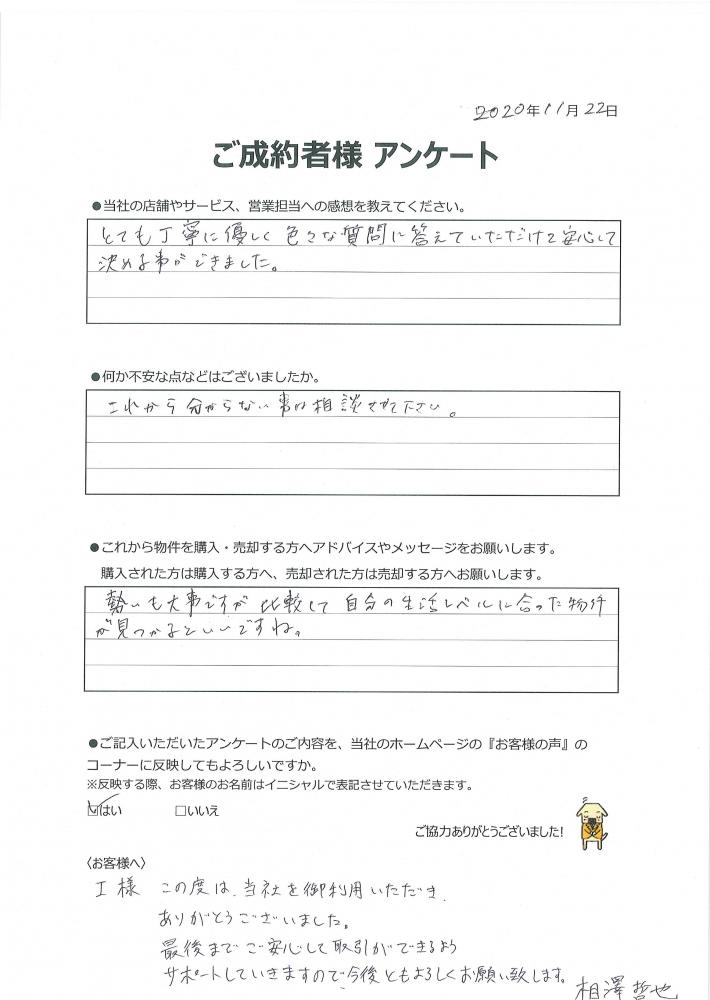 2020年11月22日
ご成約者様 アンケート
●当社の店舗やサービス、営業担当への感想を教えてください。
とても丁寧に優しく色々な質問に答えていただけて安心して
決める事ができました。
●何か不安な点などはございましたか。
これから分からない事は相談させて下さい。
●これから物件を購入・売却する方へアドバイスやメッセージをお願いします。
購入された方は購入する方へ、売却された方は売却する方へお願いします。
勢いも大事ですが比較して自分の生活レベルに合った物件
が見つかるといいですね。
●ご記入いただいたアンケートのご内容を、当社のホームページの『お客様の声』の
コーナーに反映してもよろしいですか。
※反映する際、お客様のお名前はイニシャルで表記させていただきます。
☑はい □いいえ
ご協力ありがとうございました!
〈お客様へ〉
I様 この度は、当社を御利用いただき
ありがとうございました。
最後までご安心して取引ができるよう
サポートしていきますので今後ともよろしくお願い致します。
相澤哲也